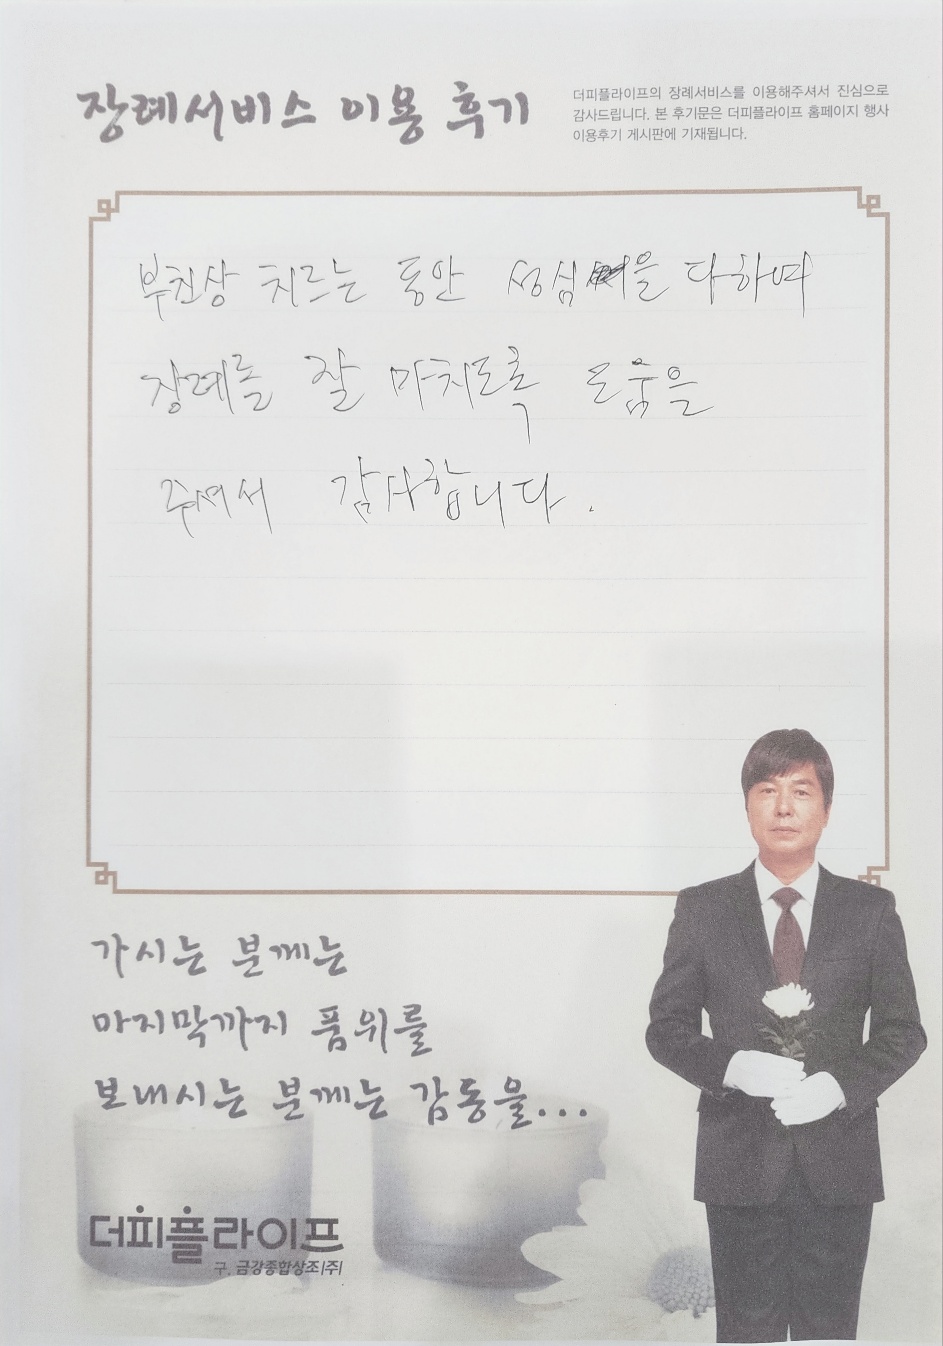 장례서비스 이용 후기
더피플라이프의 장례서비스를 이용해주셔서 진심으로
감사드립니다. 본 후기문은 더피플라이프 홈페이지 행사
이용후기 게시판에 기재됩니다.
부친상 치르는 동안 성심을 다하며
장례를 잘 마치도록 도움을
주셔서 감사합니다.
가시는 분께는
마지막까지 품위를
보내시는 분께는 감동을...
더피플라이프
구. 금강종합상조(주)